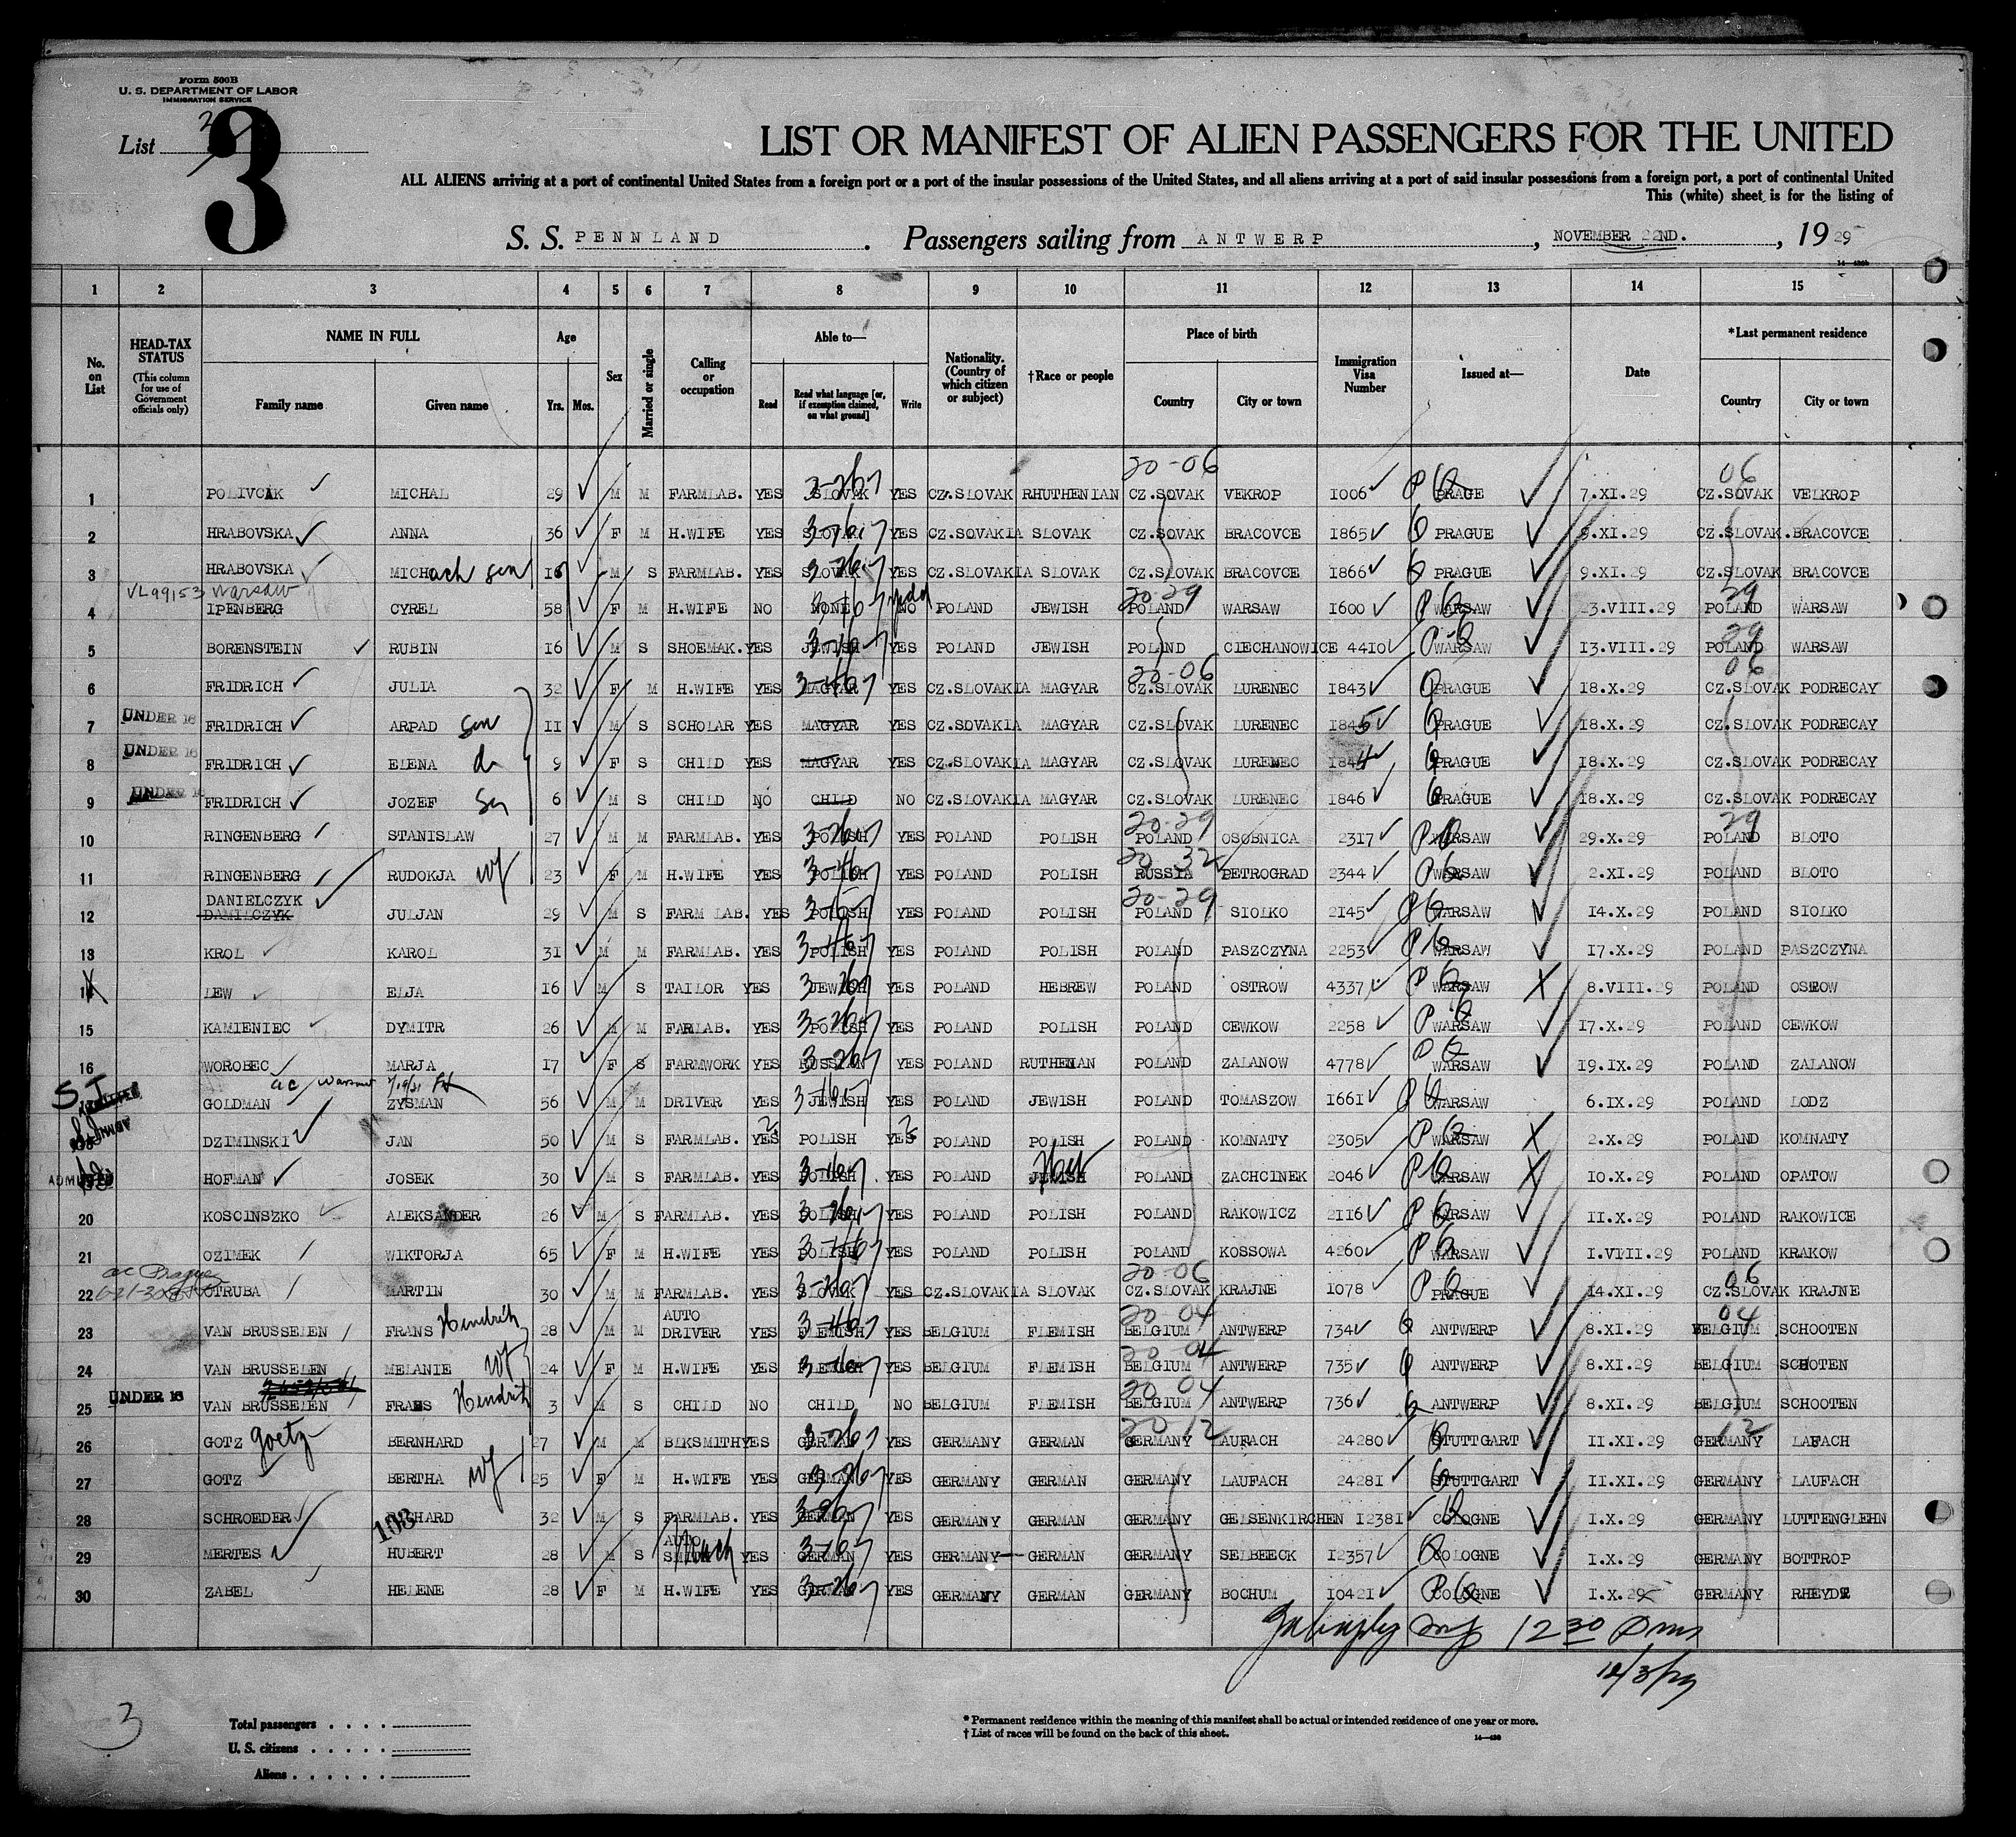 Form 500B
U. S. DEPARTMENT OF LABOR
IMMIGRATION SERVICE
List 2
3
LIST OR MANIFEST OF ALIEN PASSENGERS FOR THE UNITED
ALL ALIENS arriving at a port of continental United States from a foreign port or a port of the insular possessions of the United States, and all aliens arriving at a port of said insular possessions from a foreign port, a port of continental United
This (white) sheet is for the listing of
S. S. PENNLAND. Passengers sailing from ANTWERP, NOVEMBER 22ND., 1929
1 2 3 4 5 6 7 8 9 10 11 12 13 14 15
No. on List
HEAD-TAX STATUS (This column for use of Government officials only)
NAME IN FULL Family name Given name
Age Yrs. Mos.
Sex
Married or single
Calling or occupation
Able to— Read Read what language [or, if exemption claimed, on what ground] Write
Nationality. (Country of which citizen or subject)
†Race or people
Place of birth Country City or town
Immigration Visa Number
Issued at—
Date
*Last permanent residence Country City or town
20-06 06
1 POLIVCAK MICHAL 29 M M FARMLAB. YES SLOVAK YES CZ.SLOVAK RHUTHENIAN CZ.SOVAK VEKROP 1006 PRAGE 7.XI.29 CZ.SOVAK VELKROP
2 HRABOVSKA ANNA 36 F M H.WIFE YES SLOVAK YES CZ.SOVAKIA SLOVAK CZ.SOVAK BRACOVCE 1865 PRAGUE 9.XI.29 CZ.SLOVAK. BRACOVCE
3 HRABOVSKA MICHach son 16 M S FARMLAB. YES SLOVAK YES CZ.SLOVAKIA SLOVAK CZ.SLOVAK BRACOVCE 1866 PRAGUE 9.XI.29 CZ.SLOVAK BRACOVCE
VL99153 Warsaw 20-29 29
4 IPENBERG CYREL 58 F M H.WIFE NO NONE NO POLAND JEWISH POLAND WARSAW 1600 WARSAW 23.VIII.29 POLAND WARSAW
5 BORENSTEIN RUBIN 16 M S SHOEMAK. YES JEWISH YES POLAND JEWISH POLAND CIECHANOWICE 4410 WARSAW 13.VIII.29 POLAND WARSAW
20-06 06
6 FRIDRICH JULIA 32 F M H.WIFE YES MAGYAR YES CZ.SLOVAKIA MAGYAR CZ.SLOVAK LURENEC 1843 PRAGUE 18.X.29 CZ.SLOVAK PODRECAY
7 UNDER 16 FRIDRICH ARPAD son 11 M S SCHOLAR YES MAGYAR YES CZ.SOVAKIA MAGYAR CZ.SLOVAK LURENEC 1845 PRAGUE 18.X.29 CZ.SLOVAK PODRECAY
8 UNDER 16 FRIDRICH ELENA d 9 F S CHILD YES MAGYAR YES CZ.SLOVAKIA MAGYAR CZ.SLOVAK LURENEC 1844 PRAGUE 18.X.29 CZ.SLOVAK PODRECAY
9 UNDER 16 FRIDRICH JOZEF Sn 6 M S CHILD NO CHILD NO CZ.SLOVAKIA MAGYAR CZ.SLOVAK LURENEC 1846 PRAGUE 18.X.29 CZ.SLOVAK PODRECAY
20-29 29
10 RINGENBERG STANISLAW 27 M M FARMLAB. YES POLISH YES POLAND POLISH POLAND OSOBNICA 2317 WARSAW 29.X.29 POLAND BLOTO
20 32
11 RINGENBERG RUDOKJA wf 23 F M H.WIFE YES POLISH YES POLAND POLISH RUSSIA PETROGRAD 2344 WARSAW 2.XI.29 POLAND BLOTO
DANIELCZYK 20-29
12 DANILCZYK JULJAN 29 M S FARM LAB. YES POLISH YES POLAND POLISH POLAND SIOLKO 2145 WARSAW 14.X.29 POLAND SIOLKO
13 KROL KAROL 31 M M FARMLAB. YES POLISH YES POLAND POLISH POLAND PASZCZYNA 2253 WARSAW 17.X.29 POLAND PASZCZYNA
14 LEW ELJA 16 M S TAILOR YES JEWISH YES POLAND HEBREW POLAND OSTROW 4337 WARSAW X 8.VIII.29 POLAND OSROW
15 KAMIENIEC DYMITR 26 M M FARLAB. YES POLISH YES POLAND POLISH POLAND CEWKOW 2258 WARSAW 17.X.29 POLAND CEWKOW
16 WOROBEC MARJA 17 F S FARMWORK YES RUSSIAN YES POLAND RUTHENIAN POLAND ZALANOW 4778 WARSAW 19.IX.29 POLAND ZALANOW
S I ac/Warsaw 7/19/21
GOLDMAN ZYSMAN 56 M M DRIVER YES JEWISH YES POLAND JEWISH POLAND TOMASZOW 1661 WARSAW 6.IX.29 POLAND LODZ
DZIMINSKI JAN 50 M S FARMLAB. YES POLISH YES POLAND POLISH POLAND KOMNATY 2305 WARSAW X 2.X.29 POLAND KOMNATY
ADMITTED HOFMAN JOSEK 30 M S FARMLAB. YES POLISH YES POLAND JEWISH POLAND ZACHCINEK 2046 WARSAW X 10.X.29 POLAND OPATOW
20 KOSCINSZKO ALEKSANDER 26 M S FARMLAB. YES POLISH YES POLAND POLISH POLAND RAKOWICZ 2116 WARSAW 11.X.29 POLAND RAKOWICE
21 OZIMEK WIKTORJA 65 F M H.WIFE YES POLISH YES POLAND POLISH POLAND KOSSOWA 4260 WARSAW 1.VIII.29 POLAND KRAKOW
ac Prague 20-06 06
22 OTRUBA MARTIN 30 M M FARMLAB. YES SLOVAK YES CZ.SLOVAKIA SLOVAK CZ.SLOVAK KRAJNE 1078 PRAGUE 14.XI.29 CZ.SLOVAK KRAJNE
20-04 04
23 VAN BRUSSELEN FRANS Hendrik 28 M M AUTO DRIVER YES FLEMISH YES BELGIUM FLEMISH BELGIUM ANTWERP 734 ANTWERP 8.XI.29 BELGIUM SCHOOTEN
20-04
24 VAN BRUSSELEN MELANIE wf 24 F M H.WIFE YES FLEMISH YES BELGIUM FLEMISH BELGIUM ANTWERP 735 ANTWERP 8.XI.29 BELGIUM SCHOTEN
20 04
25 UNDER 16 VAN BRUSSELEN FRANS Hendrik 3 M S CHILD NO CHILD NO BELGIUM FLEMISH BELGIUM ANTWERP 736 ANTWERP 8.XI.29 BELGIUM SCHOOTEN
20 12 12
26 GOTZ goetz BERNHARD 27 M M BLKSMITH YES GERMAN YES GERMANY GERMAN GERMANY LAUFACH 24280 STUTTGART 11.XI.29 GERMANY LAFACH
27 GOTZ BERTHA wf 25 F M H.WIFE YES GERMAN YES GERMANY GERMAN GERMANY LAUFACH 24281 STUTTGART 11.XI.29 GERMANY LAUFACH
28 SCHROEDER 108 HARD 32 M S FARMLAB. YES GERMAN YES GERMANY GERMAN GERMANY GELSENKIRCHEN 12381 COLOGNE 1.X.29 GERMANY LUTTENGLEHN
29 MERTES HUBERT 28 M S AUTO YES GERMAN YES GERMANY GERMAN GERMANY SELBEECK 12357 COLOGNE 1.X.29 GERMANY BOTTROP
30 ZABEL HELENE 28 F M H.WIFE YES GERMAN YES GERMANY GERMAN GERMANY BOCHUM 10421 COLOGNE 1.X.29 GERMANY RHEYDT
12 30 Pm
12/3/29
3
Total passengers . . . .
U. S. citizens . . . . .
Aliens . . . . . .
* Permanent residence within the meaning of this manifest shall be actual or intended residence of one year or more.
† List of races will be found on the back of this sheet.